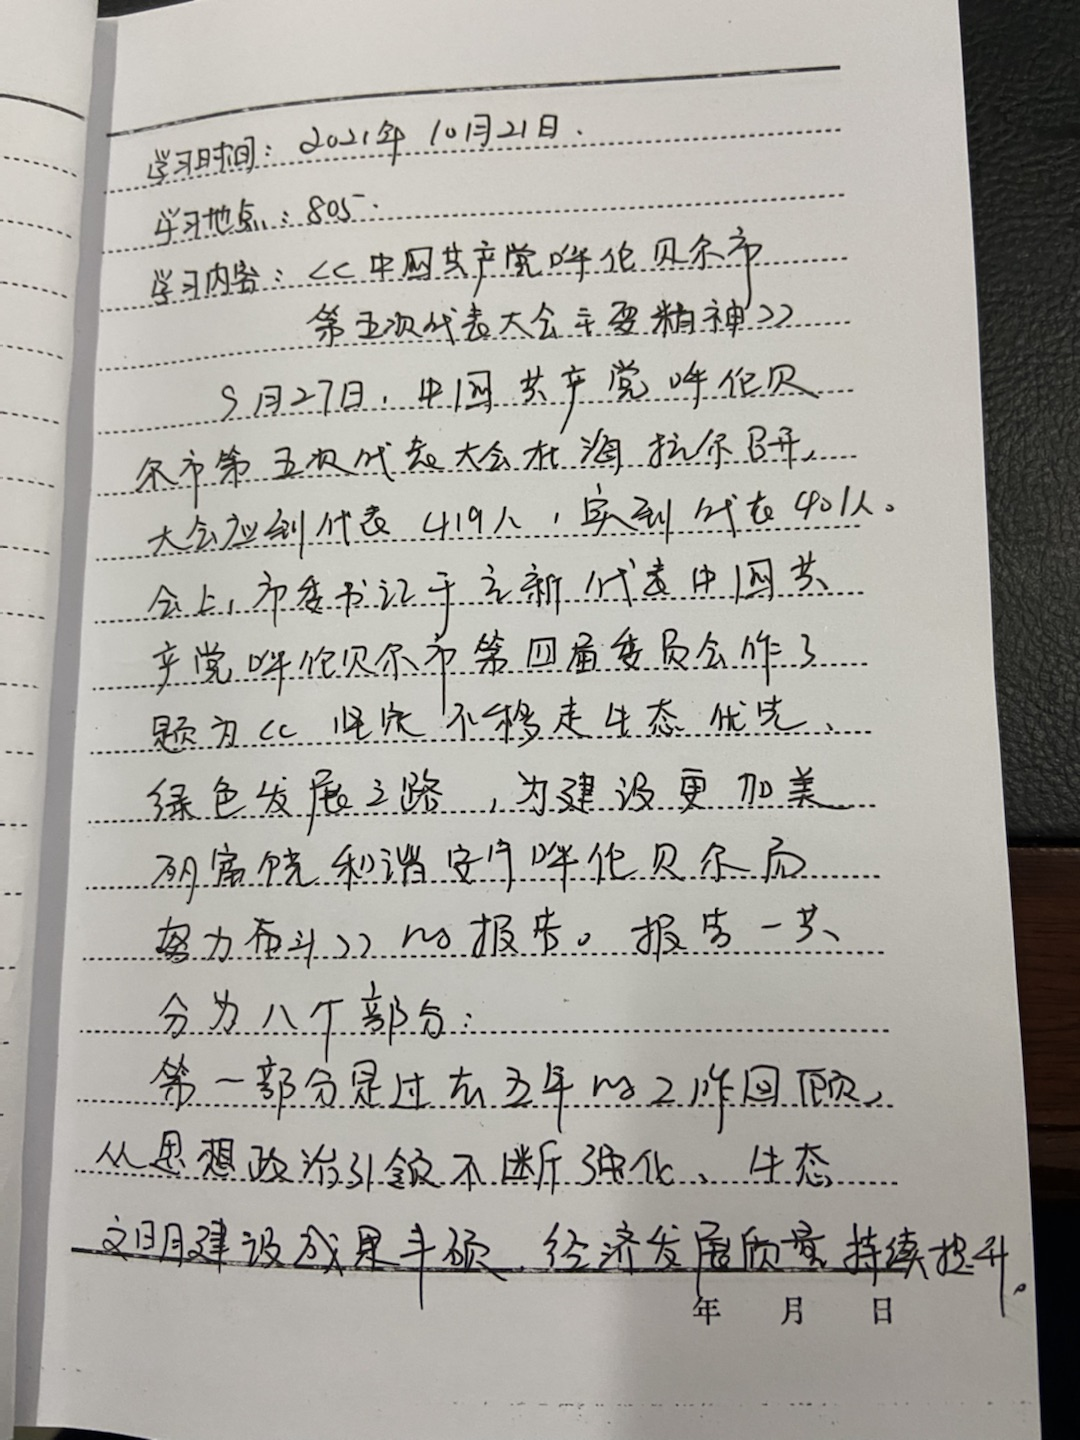 学习时间：2021年10月21日.
学习地点：805.
学习内容：<<中国共产党呼伦贝尔市
第五次代表大会主要精神>>
9月27日，中国共产党呼伦贝
尔市第五次代表大会在海拉尔召开，
大会应到代表419人，实到代表401人。
会上，市委书记于立新代表中国共
产党呼伦贝尔市第四届委员会作了
题为<<坚定不移走生态优先、
绿色发展之路，为建设更加美
丽富饶和谐安宁呼伦贝尔而
努力奋斗>>的报告。报告一共
分为八个部分：
第一部分是过去五年的工作回顾，
从思想政治引领不断强化、生态
文明建设成果丰硕、经济发展质量持续提升。
年 月 日